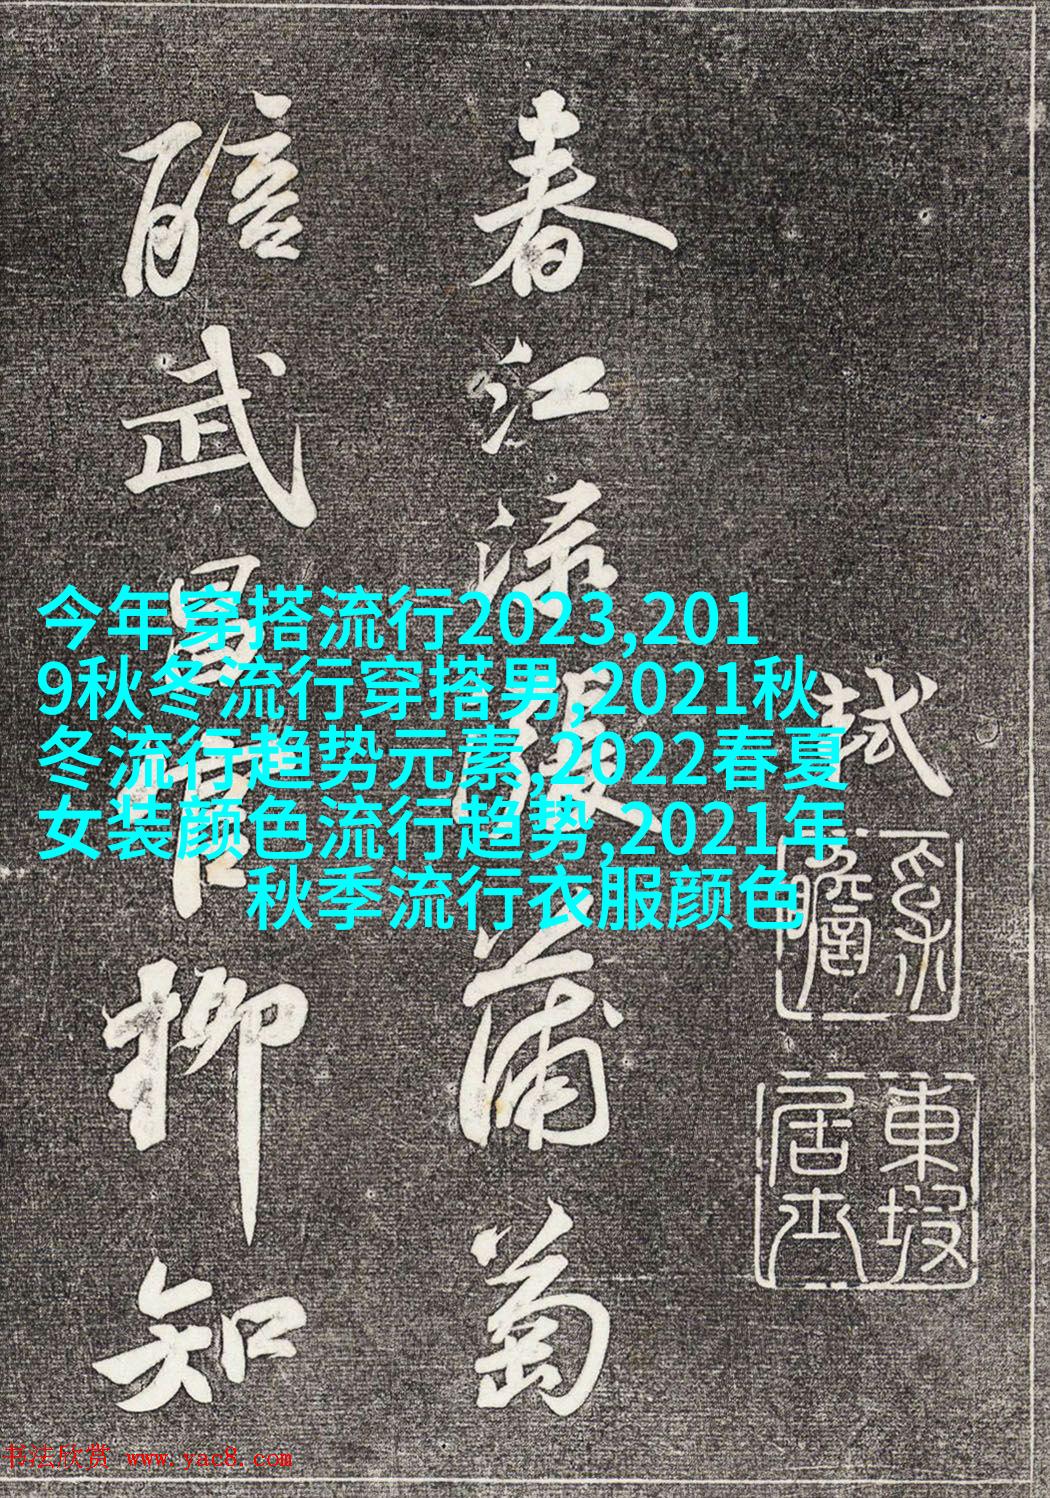 今年穿搭流行2023,201
9秋冬流行穿搭男,2021秋
冬流行趋势元素,2022春夏
女装颜色流行趋势,2021年
秋季流行衣服颜色
軾
東坡
居士
春江淥漲蒲萄
醅武昌官柳知
书法欣赏 www.yac8.com